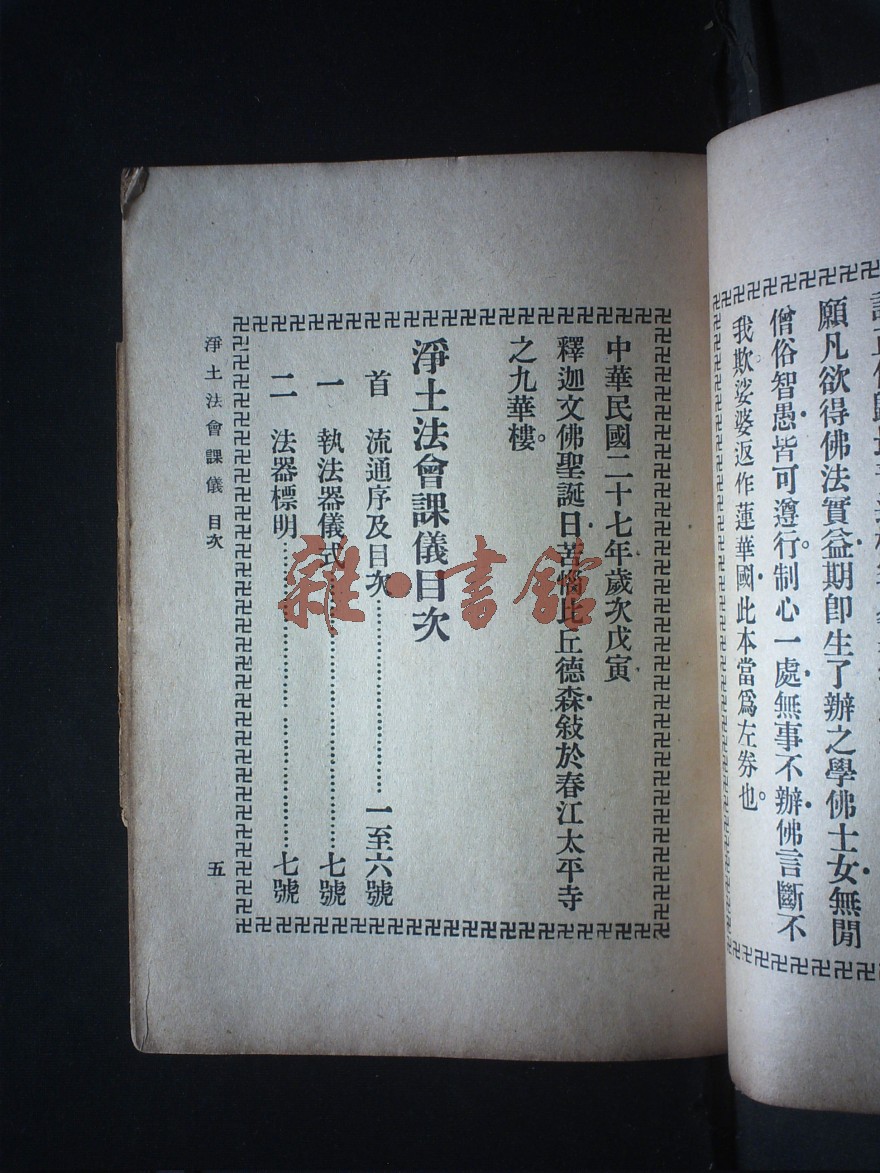 願凡欲得佛法實益．期即生了辦之學佛士女．無閒
僧俗智愚．皆可遵行。制心一處．無事不辦．佛言斷不
我欺。娑婆返作蓮華國．此本當爲左券也。
中華民國二十七年歲次戊寅．
釋迦文佛聖誕日．苦惱比丘德森．敍於春江太平寺
之九華樓。
淨土法會課儀目次
首　流通序及目次…………………一至六號
一　執法器儀式…………………七號
二　法器標明…………………七號
淨土法會課儀　目次
五
雜·書館